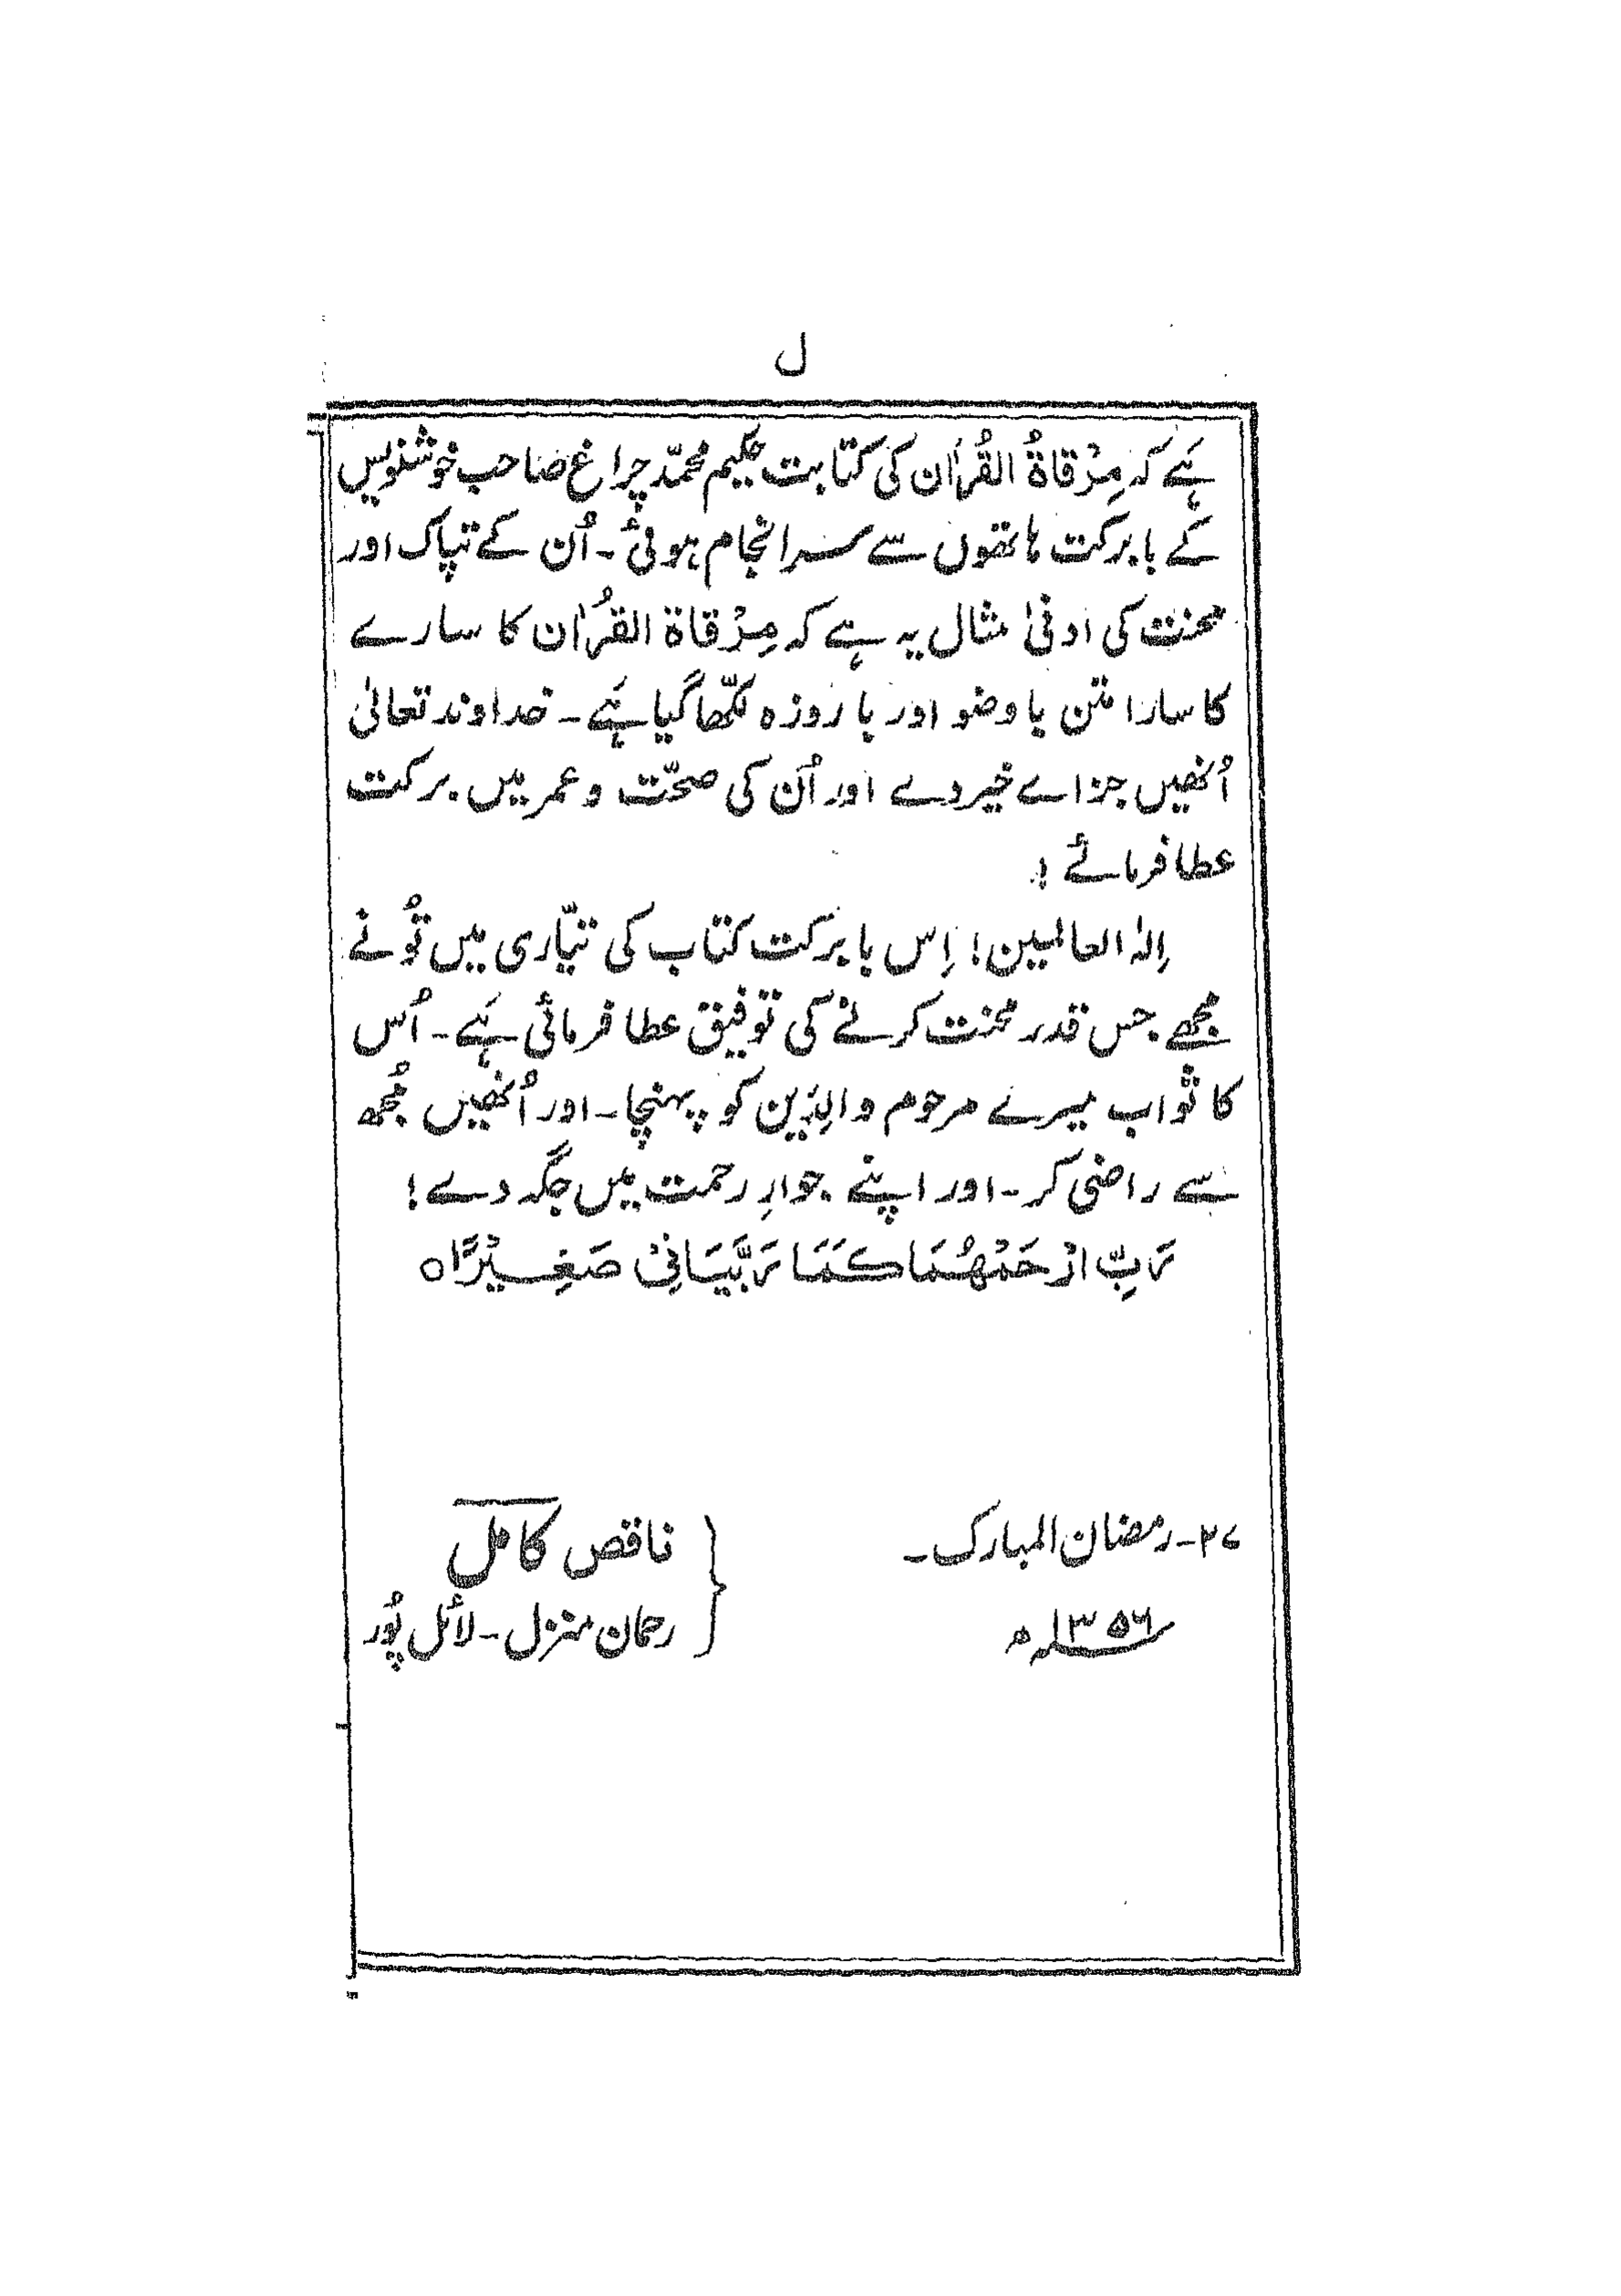 ل
ہَے کہ مِرْقاۃُ القُرْاٰن کی کتابت حکیم محمّد چراغ صاحب خوشنویس
کے بابرکت ہاتھوں سے سرانجام ہوئی ۔ اُن کے تپاک اور
محنت کی ادنیٰ مثال یہ ہے کہ مِرْقاۃ القُرْاٰن کا سارے
کا سارا متن باوضو اور باروزہ لکھّا گیا ہَے ۔ خداوند تعالیٰ
اُنھیں جزاے خیر دے اور اُن کی صحّت و عمر میں برکت
عطا فرمائے !
اِلٰہ العالمین ! اِس بابرکت کتاب کی تیّاری میں تُو نے
مجھے جس قدر محنت کرنے کی توفیق عطا فرمائی ہَے ۔ اُس
کا ثواب میرے مرحوم والِدَین کو پہنچا ۔ اور اُنھیں مُجھ
سے راضی کر ۔ اور اپنے جوارِ رحمت میں جگہ دے !
رَبِّ ارْحَمْهُمَا كَمَا رَبَّيَانِيْ صَغِيْرًا ہ
۲۷ ۔ رمضان المبارک ۔
ناقص کامل
۱۳۵۶ ھ
رحمان منزل ۔ لائل پُور